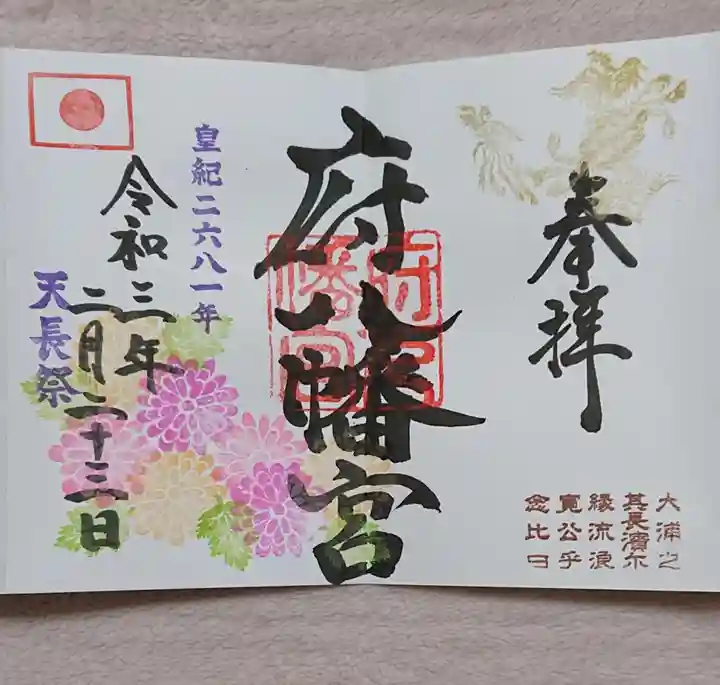 奉拝
大浦之
其長濱尓
縁流浪
寛公乎
念比日
府八幡宮
府八
幡宮
皇紀二六八一年
令和三年
二月二十三日
天長祭